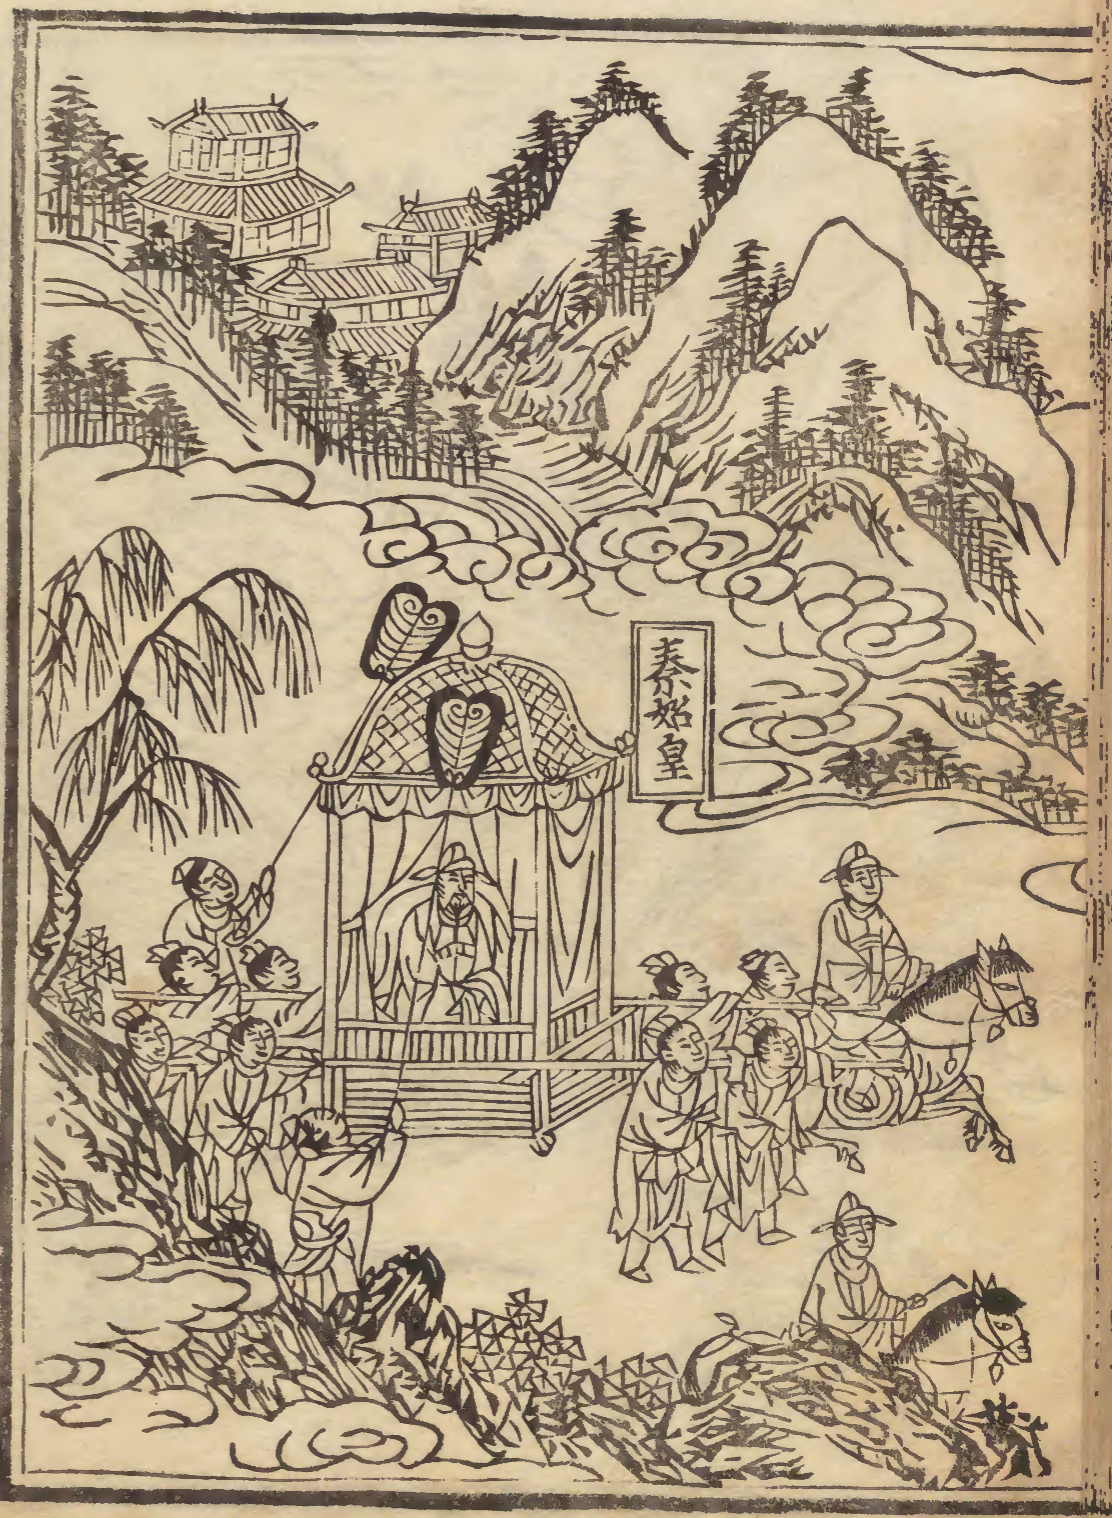 秦始皇